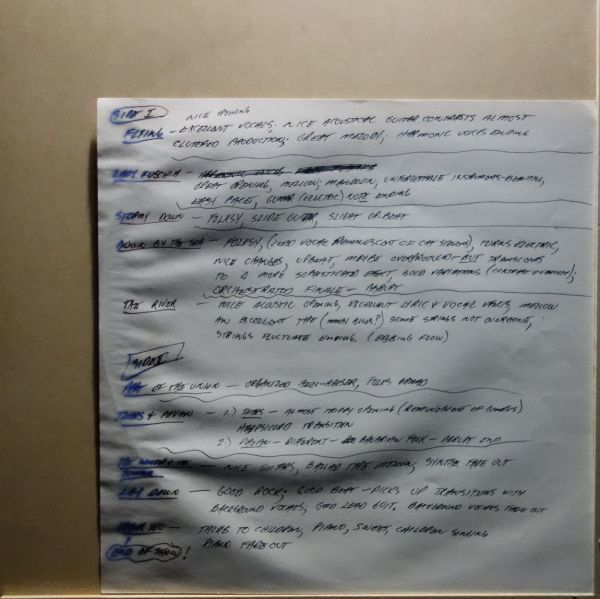 SIDE I NICE OPENING
FLYING - EXCELLENT VOCALS; NICE ACOUSTICAL GUITAR CONTRASTS ALMOST
CLUTERED PRODUCTION; GREAT MELODY; HARMONIC VOICES ENDING
LADY FUSCHIA - HARMONIC VOICES
GREAT OPENING, MELLOW, MANDOLIN, UNFORGETTABLE INSTRUMENTS-BEAUTIFUL,
EASY PACE, GUITAR (ELECTRIC) NOTE ENDING
STORMY DOWN - FOLKSY, SLIDE GUITAR, SLIGHT OFFBEAT
DOWN BY THE SEA - FOLKSY, (LEAD VOCAL REMINESCENT OF CAT STEVENS), TURNS ELECTRIC,
NICE CHANGES, UPBEAT, MAYBE OVERPRODUCED BUT TRANSCENDS
TO A MORE SOPHISTICATED EFFECT, GOOD VARIATIONS
ORCHESTRATED FINALE - ABRUPT
THE RIVER - NICE ACOUSTIC OPENING, EXCELLENT LYRIC & VOCAL VERSES, MELLOW
AN EXCELLENT TYPE (MOODY BLUES?) SOME STRINGS NOT OVERDONE;
STRINGS FLUCTUATE ENDING. (EBBING FLOW)
SIDE II
OF THE UNION - ORGANIZED
TEARS & PAVAN - 1.) TEARS - ALMOST TRIPPY OPENING (REMINESCENT OF GENESIS)
HARPSICORD TRANSITION
2.) PAVAN - DIFFERENT - BAVARIAN FOLK - ABRUPT END
NICE GUITARS, BALLAD TYPE MELODY, SYNTHE FADE OUT
LAY DOWN - GOOD ROCK; GOOD BEAT - PICKS UP TRANSITIONS WITH
BACKGROUND VOCALS, GOOD LEAD GUIT. BACKGROUND VOCALS FADE OUT
TALKS TO CHILDREN, PIANO, SWEET, CHILDREN SINGING
END OF SHOW! PIANO FADE OUT